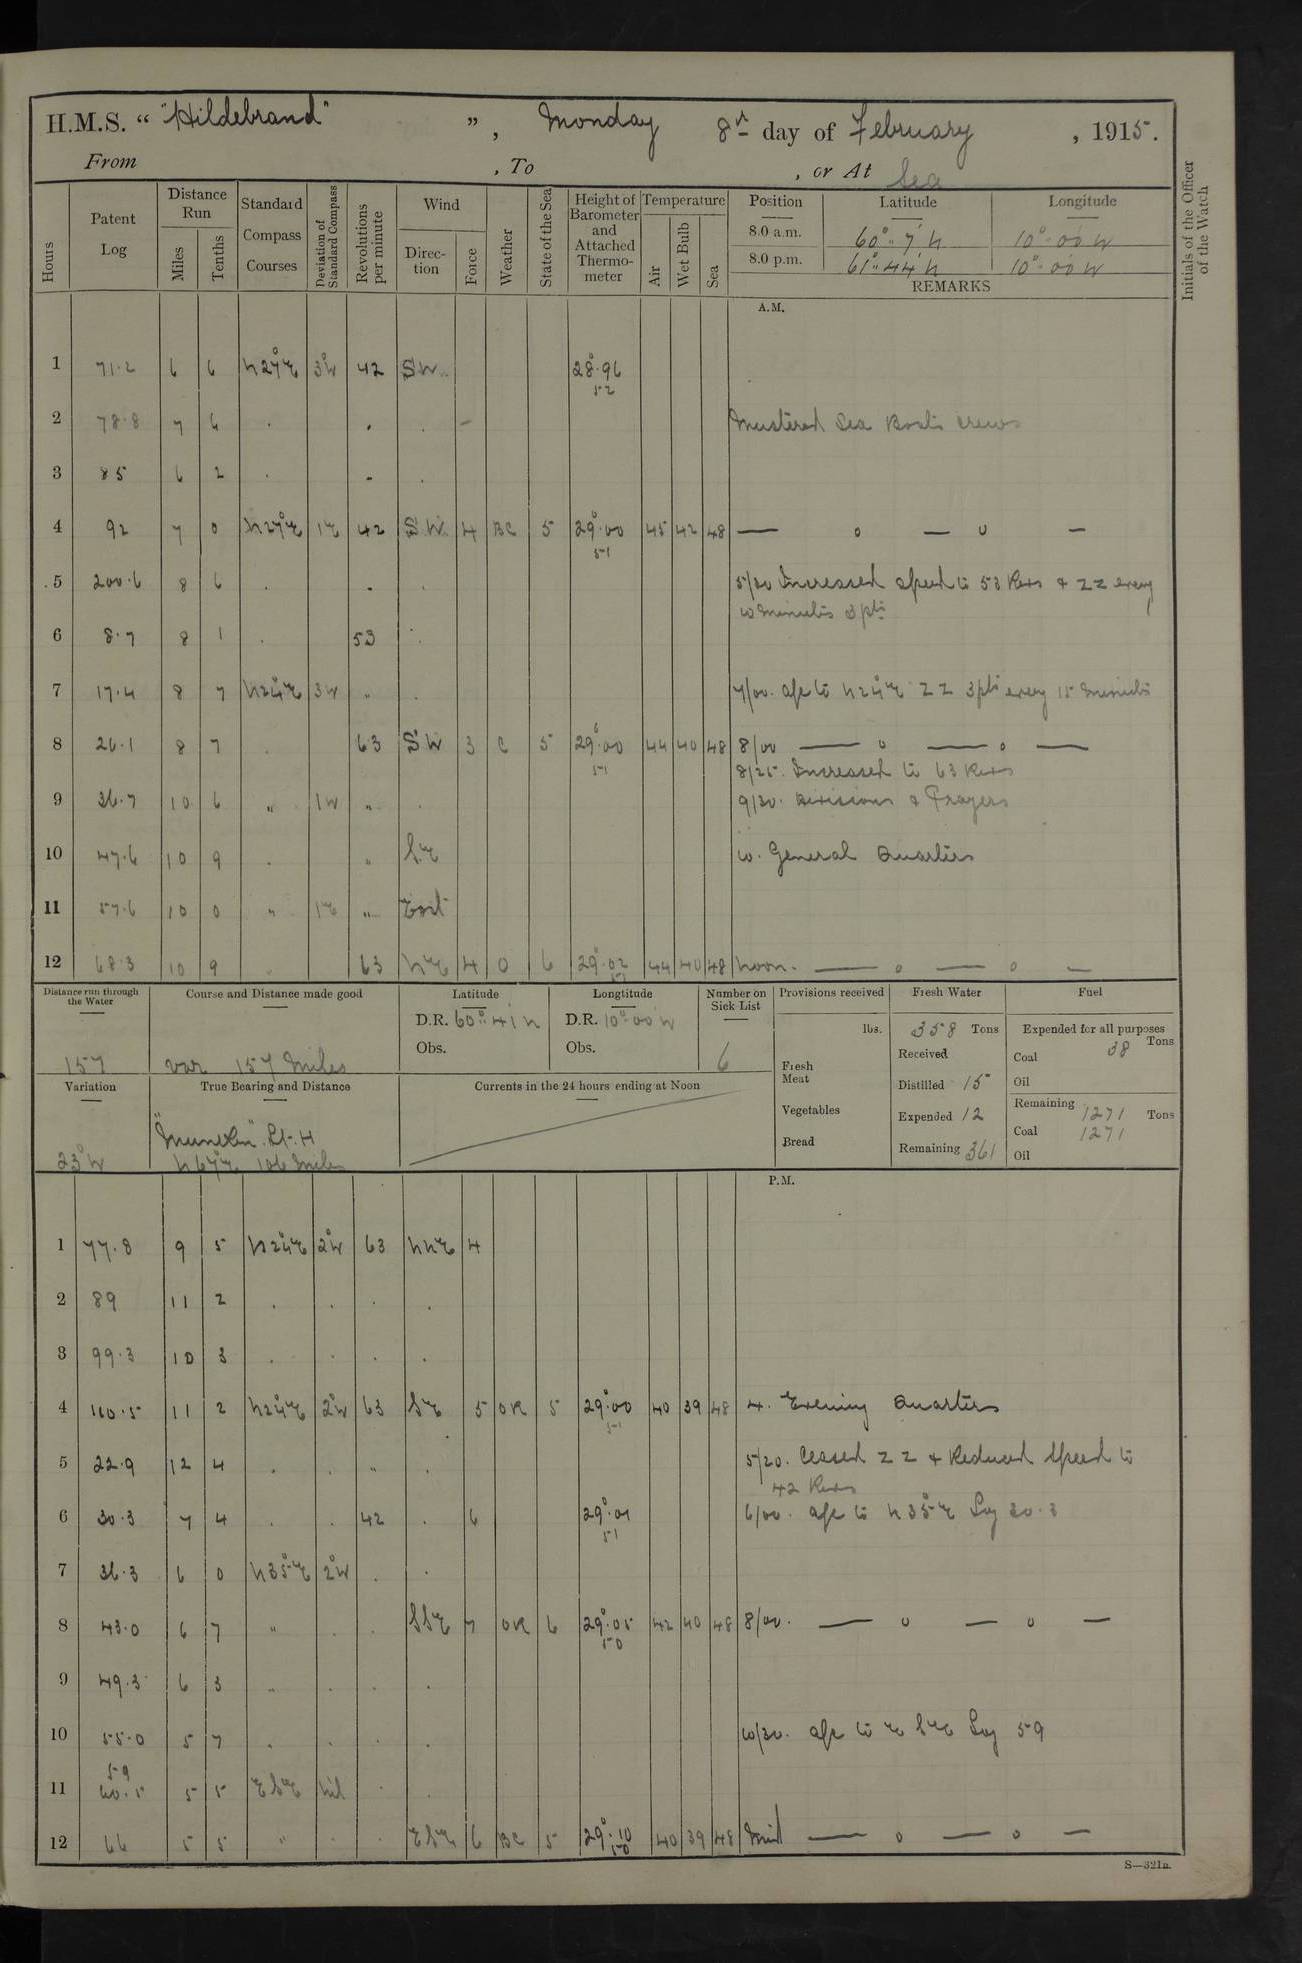 H.M.S. “ "Hildebrand" ”, Monday 8th day of February, 1915.
From , To , or At Sea
Hours
Patent Log
Distance Run
Miles
Tenths
Standard Compass Courses
Deviation of Standard Compass
Revolutions per minute
Wind
Direction
Force
Weather
State of the Sea
Height of Barometer and Attached Thermometer
Temperature
Air
Wet Bulb
Sea
Position Latitude Longitude
8.0 a.m. 60°. 7' N 10°. 00' W
8.0 p.m. 61°. 44' N 10°. 00' W
REMARKS
Initials of the Officer of the Watch
A.M.
1 71.2 6 6 N27°E 3°W 42 SW. 28.96
52
2 78.8 7 6 . . . – Mustered Sea Boats crews
3 85 6 2 . - .
4 92 7 0 N27°E 1E 42 SW. 4 BC 5 29.00 45 42 48 — o — o —
51
5 200.6 8 6 . . . 5/30 Increased speed to 53 Revs & ZZ every
10 minutes 3 pts
6 8.7 8 1 . 53 .
7 17.4 8 7 N24°E 3W " . 7/00. a/c to N24°E ZZ 3pts every 15 minutes
8 26.1 8 7 . 63 SW 3 C 5 29.00 44 40 48 8/00 — o — o —
51
8/25. Increased to 63 Revs
9 36.7 10 6 " 1W " . 9/30. Divisions & Prayers
10 47.6 10 9 . " SE 10. General Quarters
11 57.6 10 0 " 1E " East
12 68.3 10 9 . 63 NE 4 O 6 29.02 44 40 48 Noon. — o — o —
51
Distance run through the Water
157
Course and Distance made good
var 157 Miles
Latitude
D.R. 60°. 41' N
Obs.
Longtitude
D.R. 10°. 00' W
Obs.
Number on Sick List
6
Provisions received
lbs.
Fresh Meat
Vegetables
Bread
Fresh Water
358 Tons
Received
Distilled 15
Expended 12
Remaining 361
Fuel
Expended for all purposes
Tons
Coal 38
Oil
Remaining 1271 Tons
Coal 1271
Oil
Variation
23°W
True Bearing and Distance
Lt. H
N67°E 106 Miles
Currents in the 24 hours ending at Noon
P.M.
1 77.8 9 5 N24°E 2°W 63 NNE 4
2 89 11 2 . . . .
3 99.3 10 3 . . . .
4 110.5 11 2 N24°E 2°W 63 SE 5 OR 5 29.00 40 39 48 4. Evening Quarters
51
5 22.9 12 4 . . " . 5/20. Ceased ZZ & Reduced Speed to
42 Revs
6 30.3 7 4 . . 42 . 6 29.01 6/00. a/c to N35°E Log 30.3
51
7 36.3 6 0 N35°E 2°W . .
8 43.0 6 7 " . . SSE 7 OR 6 29.05 42 40 48 8/00. — o — o —
50
9 49.3 6 3 " . . .
10 55.0 5 7 . . . . 10/30. a/c to E SE Log 59
59
11 60.5 5 5 ESE Nil . .
12 66 5 5 " . . ESE 6 BC 5 29.10 40 39 48 Mid — o — o —
50
S—321a.